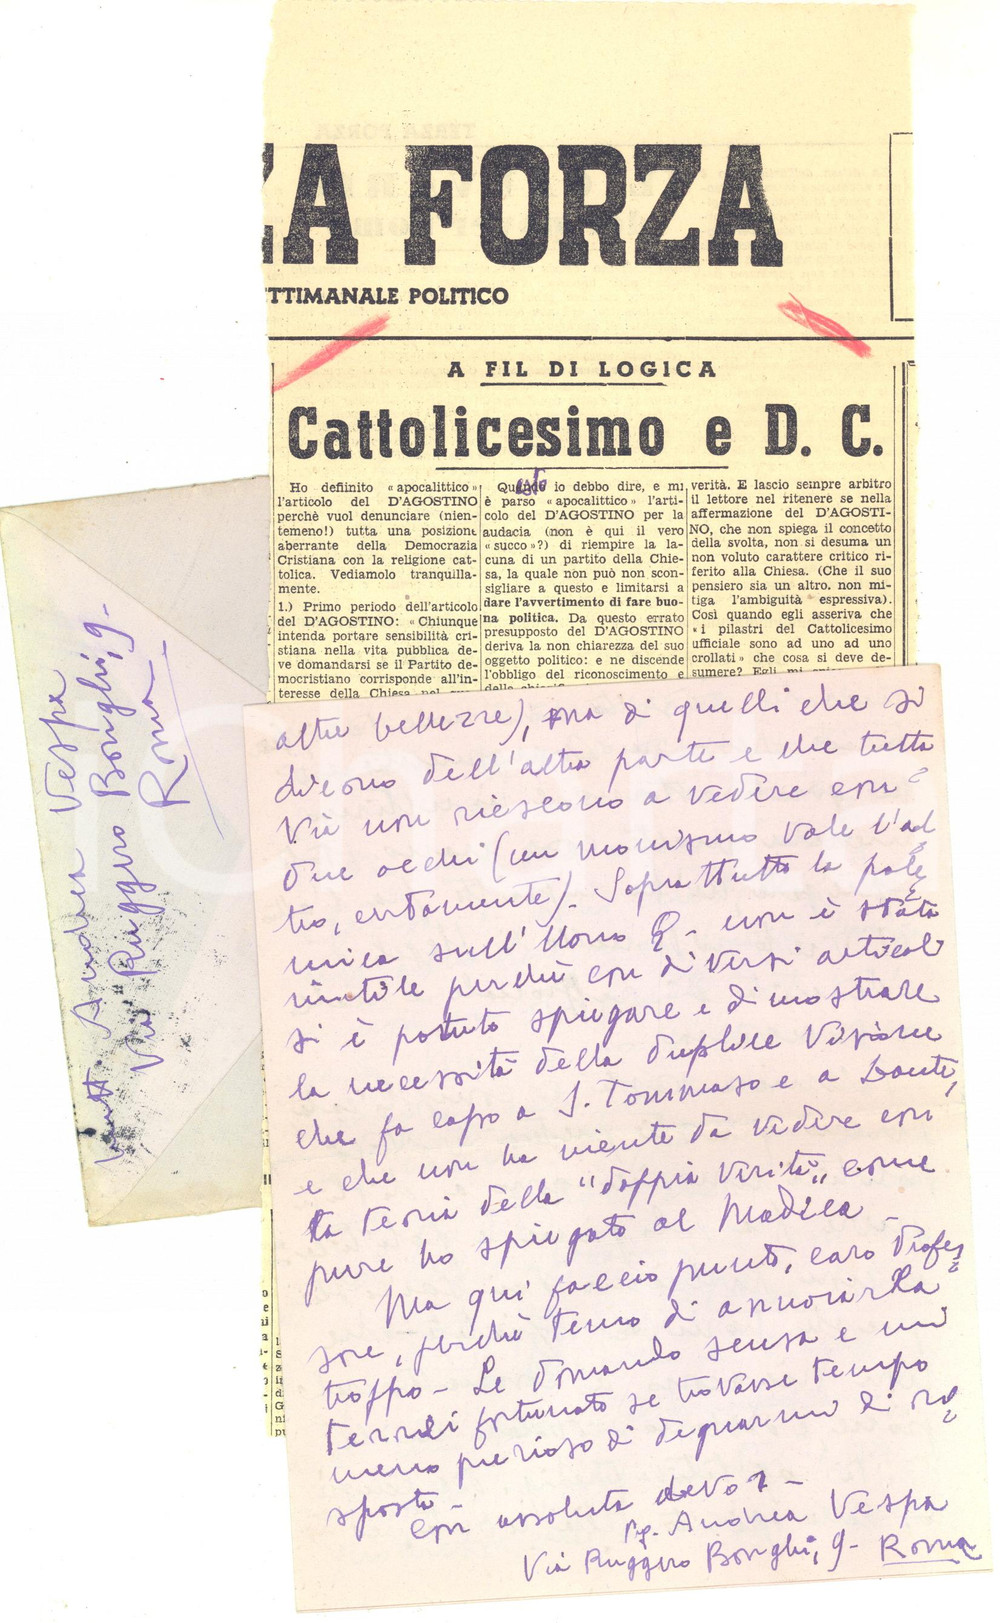 ZA FORZA
ETTIMANALE POLITICO
A FIL DI LOGICA
Cattolicesimo e D. C.
Ho defiinito «apocalittico»
l'articolo del D'AGOSTINO
perchè vuol denunciare (nien-
temeno!) tutta una posizione
aberrante della Democrazia
Cristiana con la religione cat-
tolica. Vediamolo tranquilla-
mente.
1.) Primo periodo dell'articolo
del D'AGOSTINO: «Chiunque
intenda portare sensibilità cri-
stiana nella vita pubblica de-
ve domandarsi se il Partito de-
mocristiano corrisponde all'in-
teresse della Chiesa nel
io debbo dire, e mi
è parso «apocalittico» l'arti-
colo del D'AGOSTINO per la
audacia (non è qui il vero
«succo»?) di riempire la la-
cuna di un partito della Chie-
sa, la quale non può non scon-
sigliare a questo e limitarsi a
dare l'avvertimento di fare buo-
na politica. Da questo errato
presupposto del D'AGOSTINO
deriva la non chiarezza del suo
oggetto politico: e ne discende
l'obbligo del riconoscimento e
verità. E lascio sempre arbitro
il lettore nel ritenere se nella
affermazione del D'AGOSTI-
NO, che non spiega il concetto
della svolta, non si desuma un
non voluto carattere critico ri-
ferito alla Chiesa. (Che il suo
pensiero sia un altro. non mi-
tiga l'ambiguità espressiva).
Così quando egli asseriva che
«i pilastri del Cattolicesimo
ufficiale sono ad uno ad uno
crollati» che cosa si deve de-
sumere? Egli mi
altre bellezze), ma di quelli che si
dicono dell'altra parte e che tutta
via non riescono a vedere con
due occhi (un monismo vale l'al
tro, certamente). Soprattutto la pole
mica sull'Uomo Q - non è stata
inutile perchè con diversi articoli
si è potuto spiegare e dimostrare
la necessità della duplice visione
che fa capo a S. Tommaso e a Dante,
e che non ha niente da vedere con
la teoria della "doppia verità", come
pure ho spiegato al Madìca -
Ma qui faccio punto, caro Profes
sore, perchè temo di annoiarLa
troppo - Le domando scusa e mi
terrei fortunato se trovasse tempo
meno prezioso di degnarmi di ri
sposta -
Con assoluta devoz -
Andrea Vespa
Via Ruggero Bonghi, 9 - Roma
Andrea Vespa
Via Ruggero Bonghi, 9 -
Roma